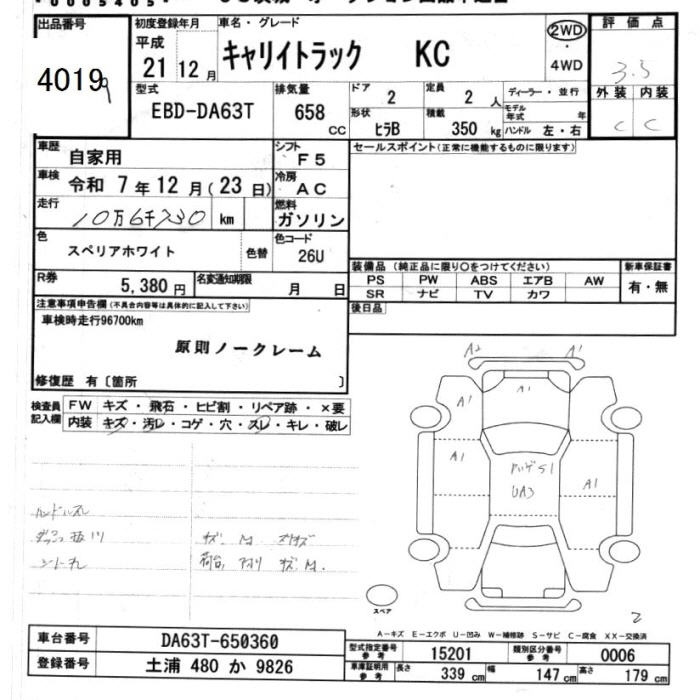 出品番号
4019
初度登録年月
平成
21 12 月
車名・グレード
キャリイトラック KC
2WD
4WD
評価点
3.5
型式
EBD-DA63T
排気量
658 cc
ドア
2
定員
2 人
形状
ヒラB
積載
350 kg
ディーラー・並行
モデル年式 年
ハンドル 左・右
外装 内装
C C
車歴
自家用
シフト
F5
車検
令和 7 年 12 月 ( 23 日)
冷房
AC
走行
10万6千730 km
燃料
ガソリン
色
スペリアホワイト
色替
色コード
26U
R券
5,380 円
名変通知期限
月 日
セールスポイント(正常に機能するものに限ります)
装備品 (純正品に限り○をつけてください)
PS PW ABS エアB AW
SR ナビ TV カワ
新車保証書
有・無
後日品
注意事項申告欄(不具合内容等は具体的に記入して下さい)
車検時走行96700km
原則ノークレーム
修復歴 有〔箇所 〕
検査員記入欄
FW キズ・飛石・ヒビ割・リペア跡・×要
内装 キズ・汚レ・コゲ・穴・スレ・キレ・破レ
ハンドルスレ
シートヨゴレ
A2 A1
A1 A1
A1 A1
UA3
スペア
2
A-キズ E-エクボ U-凹み W-補修跡 S-サビ C-腐食 XX-交換済
車台番号
DA63T-650360
登録番号
土浦 480 か 9826
型式指定番号
参考
15201
類別区分番号
参考
0006
車庫証明用
参考
長さ 339 cm 幅 147 cm 高さ 179 cm